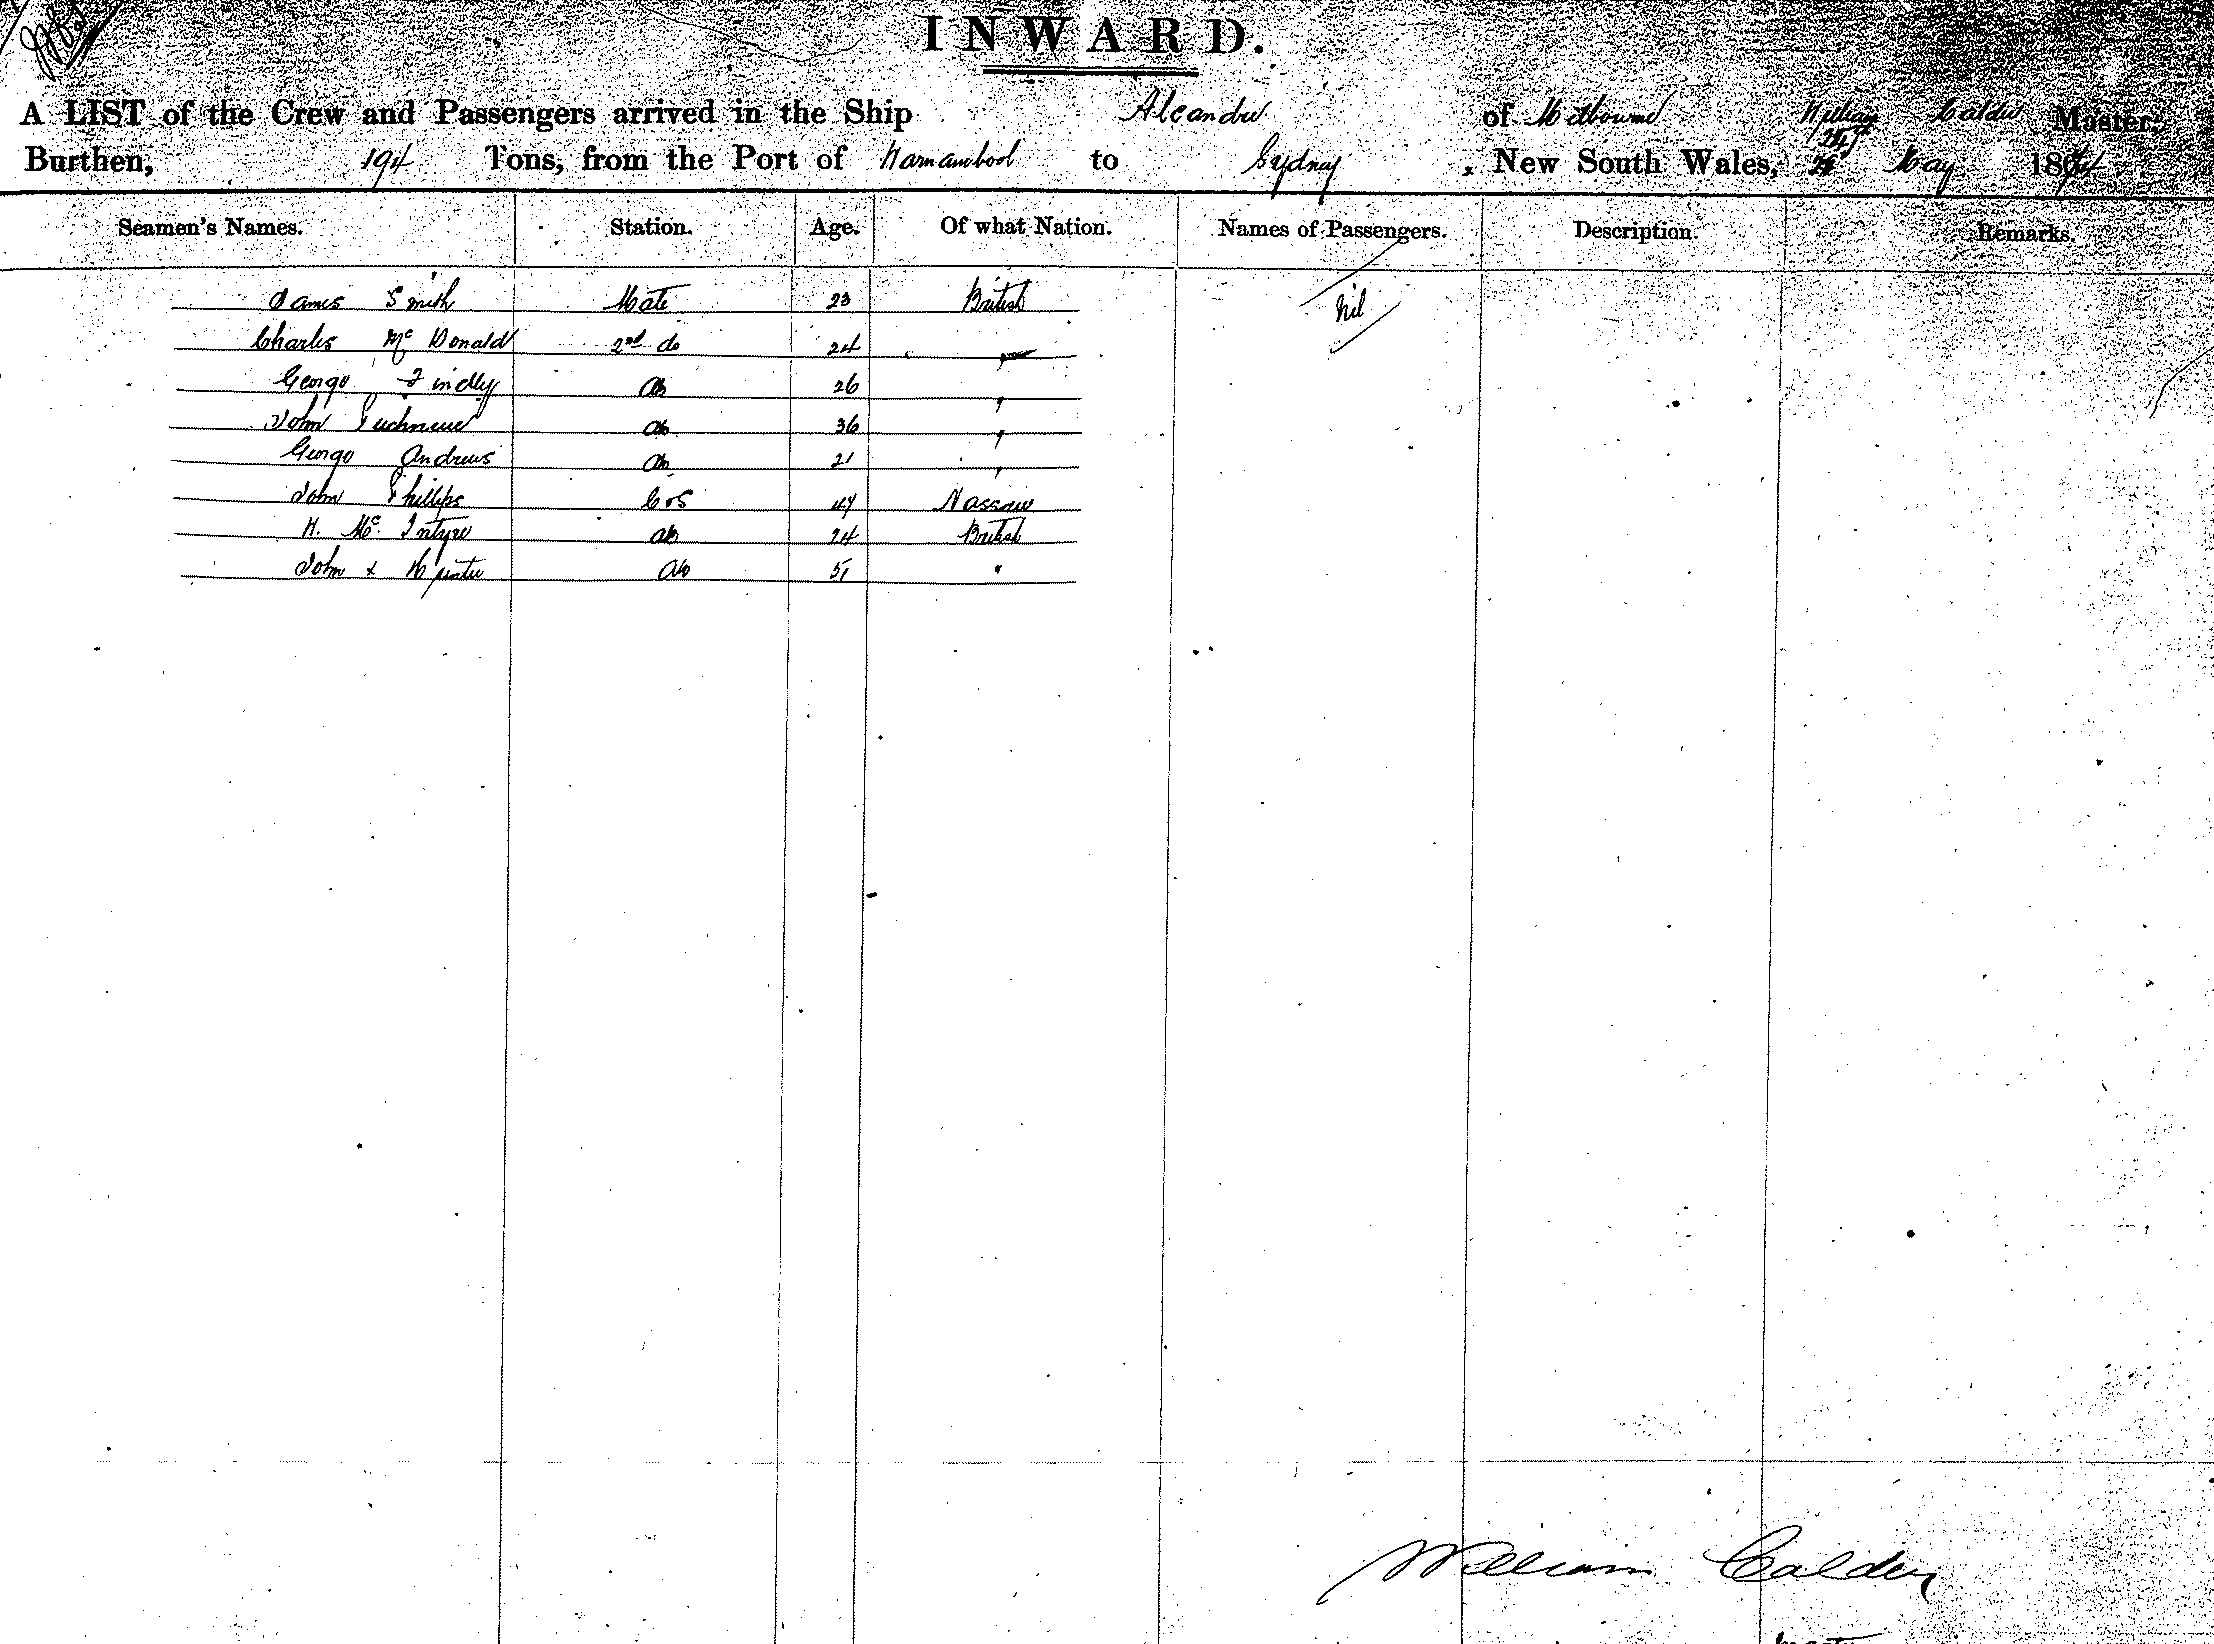 INWARD.
A LIST of the Crew and Passengers arrived in the Ship Alcandre of Melbourne William Calder Master,
Burthen, 194 Tons, from the Port of Warnambool to Sydney, New South Wales, May 187
Seamen's Names. Station. Age. Of what Nation. Names of Passengers. Description. Remarks.
James Smith Mate 23 British Nil
Charles Mc Donald 2nd do 24 "
George Findlly AB 26 "
John AB 36 "
George Andrews AB 21 "
John Phillips C & S 47 Nassau
H. Mc Intyre AB 24 British
John AB 51 "
William Calder